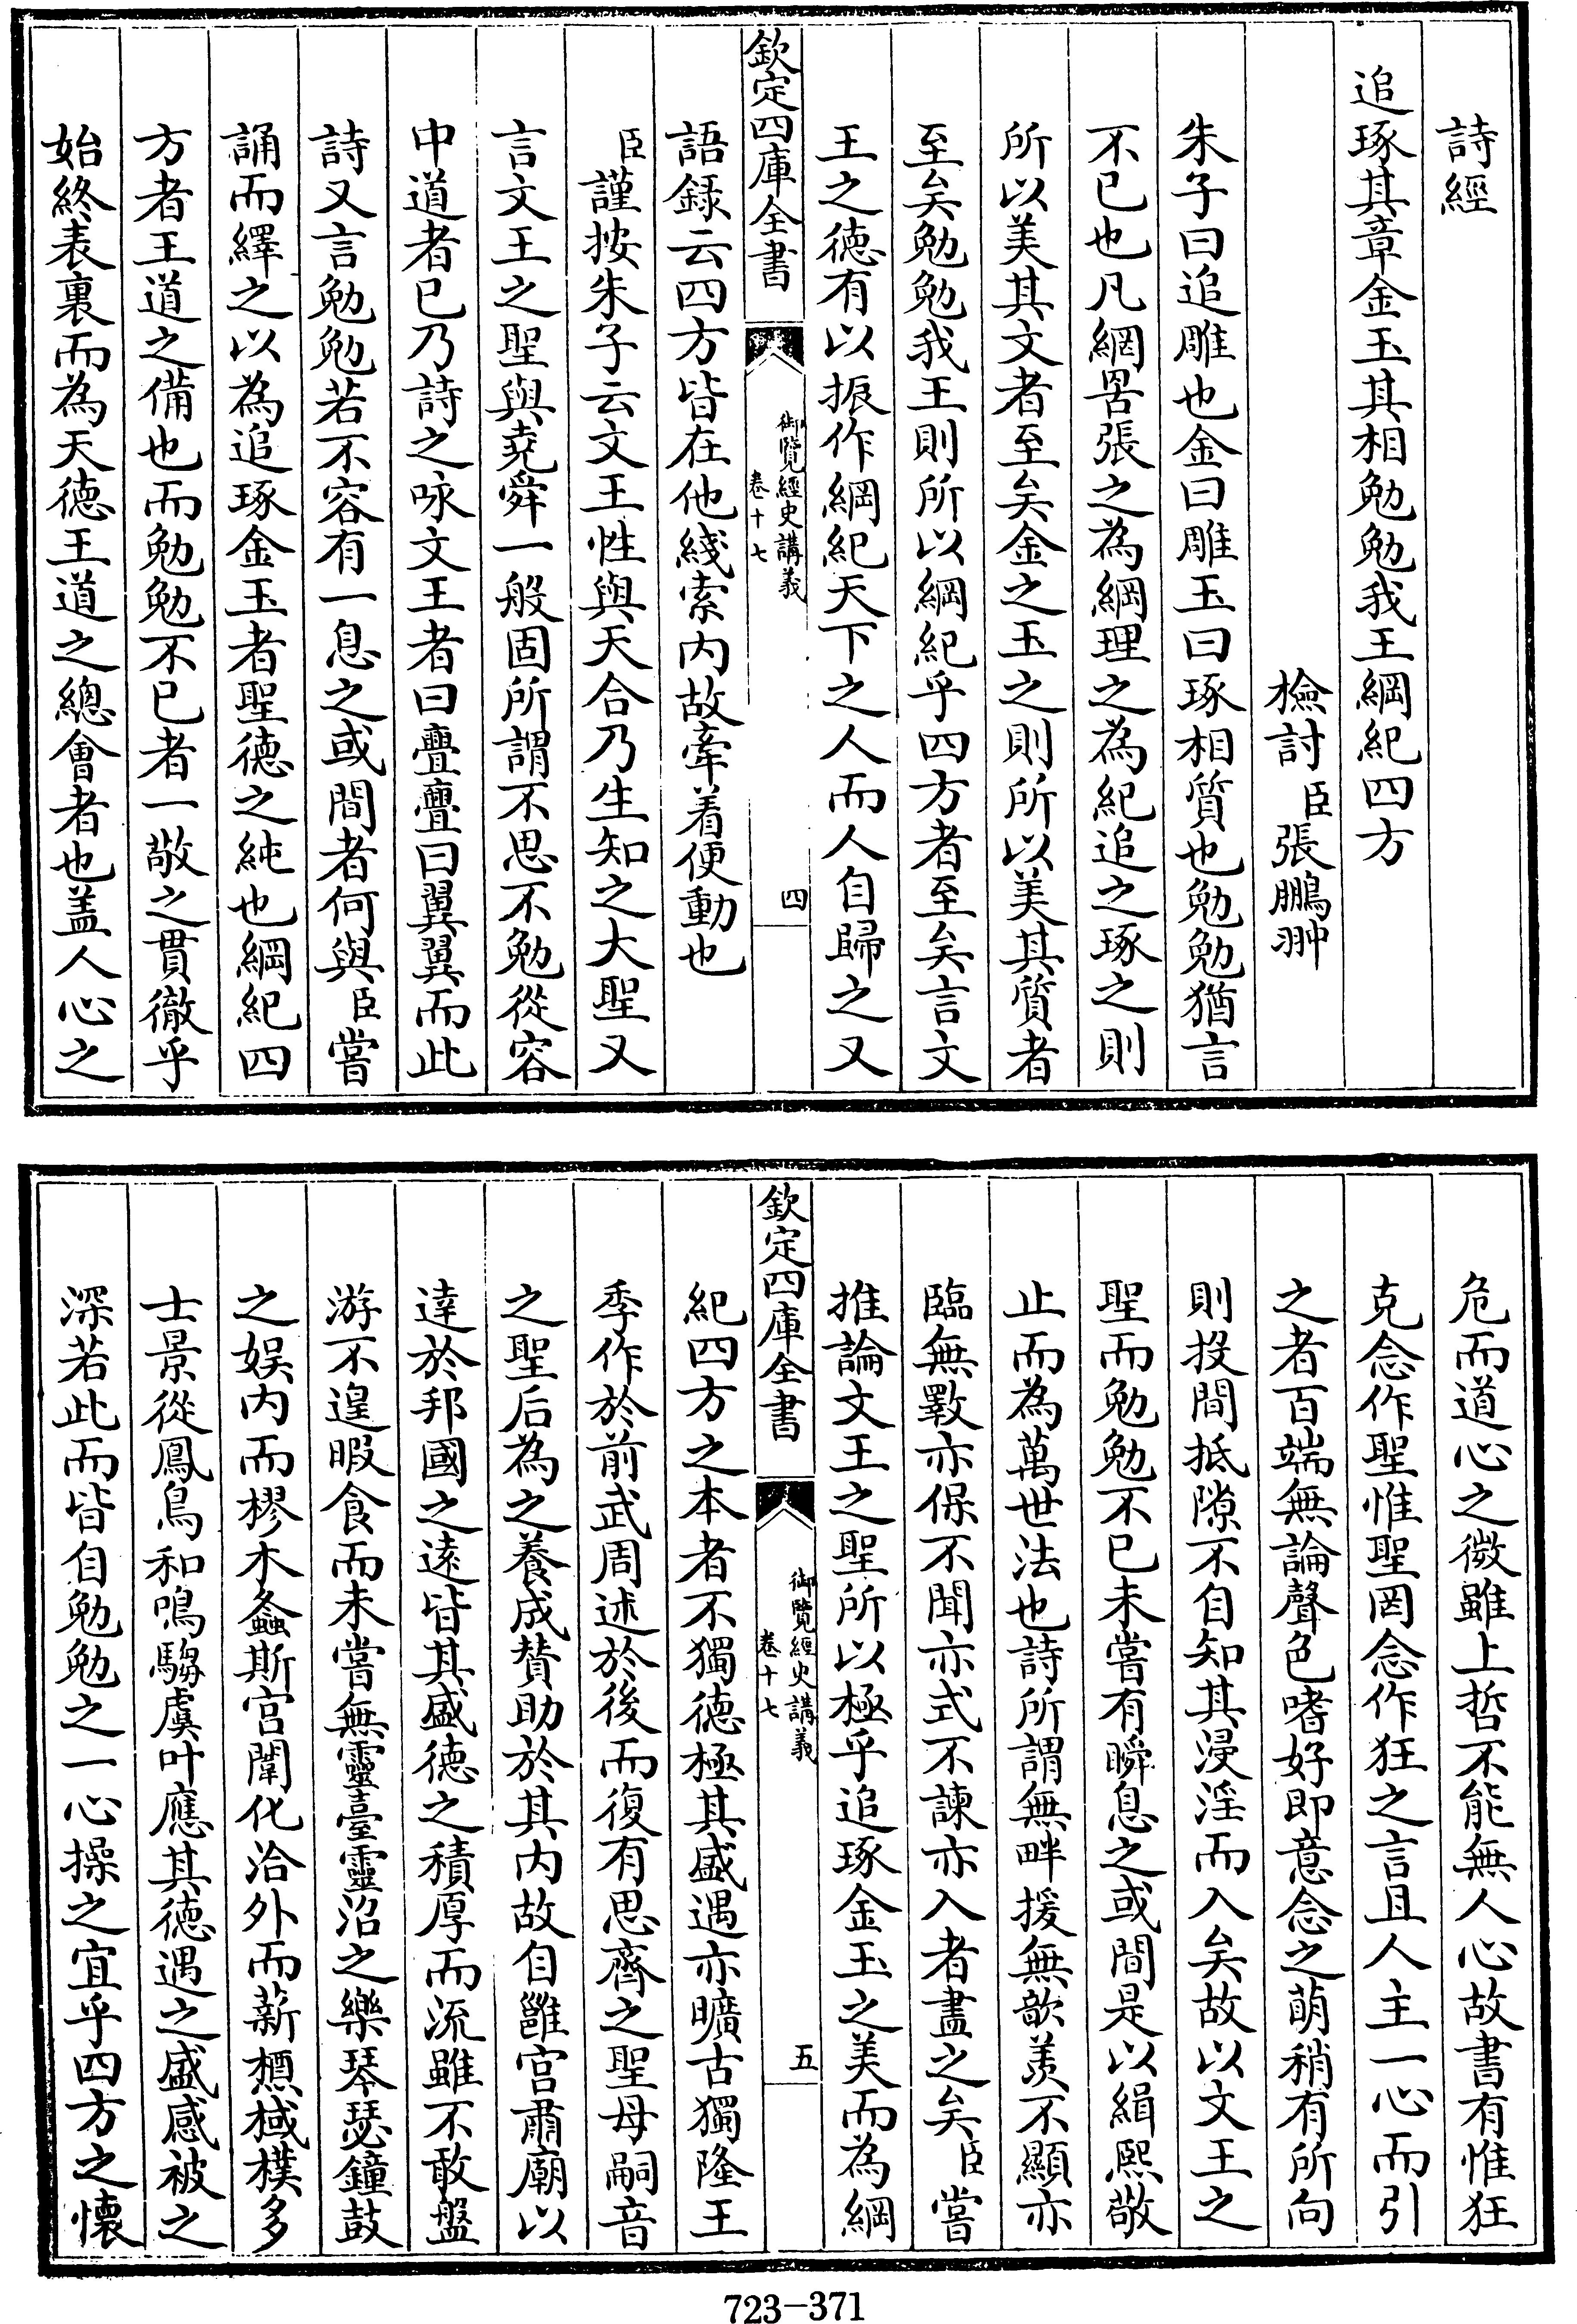 詩經
追琢其章金玉其相勉勉我王綱紀四方
檢討臣張鵬翀
朱子曰追雕也金曰雕玉曰琢相質也勉勉猶言
不已也凡網罟張之為綱理之為紀追之琢之則
所以美其文者至矣金之玉之則所以美其質者
至矣勉勉我王則所以綱紀乎四方者至矣言文
王之德有以振作綱紀天下之人而人自歸之又
欽定四庫全書
御覽經史講義
卷十七
四
語錄云四方皆在他綫索内故牽着便動也
臣謹按朱子云文王性與天合乃生知之大聖又
言文王之聖與堯舜一般固所謂不思不勉從容
中道者已乃詩之咏文王者曰亹亹曰翼翼而此
詩又言勉勉若不容有一息之或間者何與臣嘗
誦而繹之以為追琢金玉者聖德之純也綱紀四
方者王道之備也而勉勉不已者一敬之貫徹乎
始終表裏而為天德王道之總會者也盖人心之
危而道心之微雖上哲不能無人心故書有惟狂
克念作聖惟聖罔念作狂之言且人主一心而引
之者百端無論聲色嗜好即意念之萌稍有所向
則投間抵隙不自知其浸淫而入矣故以文王之
聖而勉勉不已未嘗有瞬息之或間是以緝熙敬
止而為萬世法也詩所謂無畔援無歆羨不顯亦
臨無斁亦保不聞亦式不諫亦入者盡之矣臣嘗
推論文王之聖所以極乎追琢金玉之美而為綱
欽定四庫全書
御覽經史講義
卷十七
五
紀四方之本者不獨德極其盛遇亦曠古獨隆王
季作於前武周述於後而復有思齊之聖母嗣音
之聖后為之養成賛助於其内故自雝宫肅廟以
逹於邦國之遠皆其盛德之積厚而流雖不敢盤
游不遑暇食而未嘗無靈臺靈沼之樂琴瑟鐘鼓
之娱内而樛木螽斯宫闈化洽外而薪槱棫樸多
士景從鳳鳥和鳴騶虞叶應其德遇之盛感被之
深若此而皆自勉勉之一心操之宜乎四方之懷
723-371